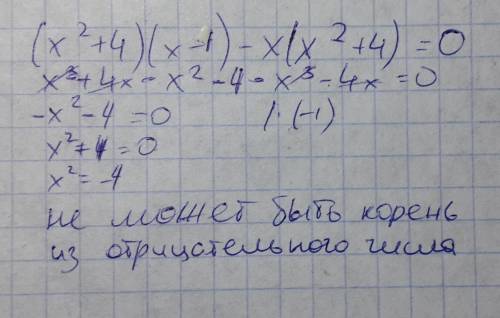 (x²+4)(x-1) - x(x²+4) = 0
x³+4x - x² - 4 - x³ - 4x = 0
-x² - 4 = 0 /·(-1)
x² + 4 = 0
x² = -4
не может быть корень
из отрицательного числа